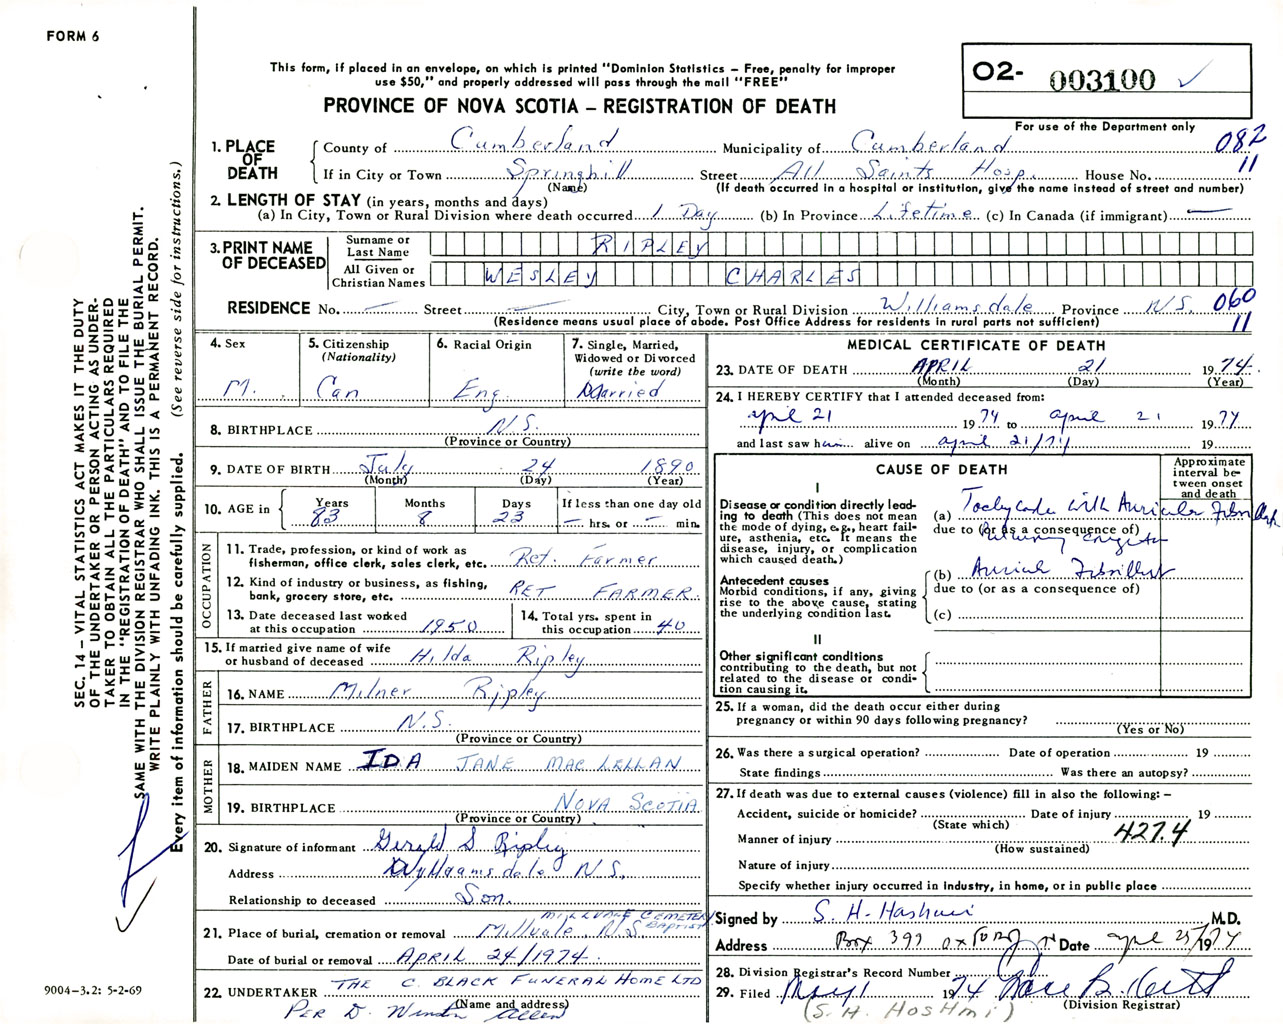 FORM 6
This form, if placed in an envelope, on which is printed "Dominion Statistics – Free, penalty for improper
use $50," and properly addressed will pass through the mail "FREE"
PROVINCE OF NOVA SCOTIA – REGISTRATION OF DEATH
02- 003100 ✓
For use of the Department only
SEC. 14 – VITAL STATISTICS ACT MAKES IT THE DUTY
OF THE UNDERTAKER OR PERSON ACTING AS UNDER-
TAKER TO OBTAIN ALL THE PARTICULARS REQUIRED
IN THE "REGISTRATION OF DEATH" AND TO FILE THE
SAME WITH THE DIVISION REGISTRAR WHO SHALL ISSUE THE BURIAL PERMIT.
WRITE PLAINLY WITH UNFADING INK. THIS IS A PERMANENT RECORD.
Every item of information should be carefully supplied. (See reverse side for instructions.)
1. PLACE OF DEATH
County of Cumberland Municipality of Cumberland 082
If in City or Town Springhill Street All Saints Hosp. House No. 11
(Name) (If death occurred in a hospital or institution, give the name instead of street and number)
2. LENGTH OF STAY (in years, months and days)
(a) In City, Town or Rural Division where death occurred 1 Day (b) In Province Lifetime (c) In Canada (if immigrant) —
3. PRINT NAME OF DECEASED
Surname or Last Name RIPLEY
All Given or Christian Names WESLEY CHARLES
RESIDENCE No. — Street — City, Town or Rural Division Williamsdale Province N.S. 060
(Residence means usual place of abode. Post Office Address for residents in rural parts not sufficient) 11
4. Sex M.
5. Citizenship (Nationality) Can
6. Racial Origin Eng.
7. Single, Married, Widowed or Divorced (write the word) Married
8. BIRTHPLACE N.S.
(Province or Country)
9. DATE OF BIRTH July 24 1890
(Month) (Day) (Year)
10. AGE in Years 83 Months 8 Days 23 If less than one day old — hrs. or — min.
OCCUPATION
11. Trade, profession, or kind of work as
fisherman, office clerk, sales clerk, etc. Ret. Farmer
12. Kind of industry or business, as fishing,
bank, grocery store, etc. RET FARMER
13. Date deceased last worked
at this occupation 1950
14. Total yrs. spent in
this occupation 40
15. If married give name of wife
or husband of deceased Hilda Ripley
FATHER
16. NAME Milner Ripley
17. BIRTHPLACE N.S.
(Province or Country)
MOTHER
18. MAIDEN NAME IDA JANE MAC LELLAN
19. BIRTHPLACE NOVA SCOTIA
(Province or Country)
20. Signature of informant Gerald S Ripley
Address Wyllaamsdale N.S.
Relationship to deceased Son.
21. Place of burial, cremation or removal Millvale, N.S. MILLVALE CEMETERY BAPTIST
Date of burial or removal APRIL 24/1974.
22. UNDERTAKER THE C. BLACK FUNERAL HOME LTD
(Name and address)
PER D. Winston Allen
MEDICAL CERTIFICATE OF DEATH
23. DATE OF DEATH APRIL 21 1974.
(Month) (Day) (Year)
24. I HEREBY CERTIFY that I attended deceased from:
april 21 1974 to april 21 1974
and last saw him alive on april 21/74 19
CAUSE OF DEATH
Approximate interval between onset and death
I
Disease or condition directly lead-
ing to death (This does not mean
the mode of dying, e.g., heart fail-
ure, asthenia, etc. It means the
disease, injury, or complication
which caused death.)
(a) with Auricular
due to (or as a consequence of)
Antecedent causes
Morbid conditions, if any, giving
rise to the above cause, stating
the underlying condition last.
(b)
due to (or as a consequence of)
(c)
II
Other significant conditions
contributing to the death, but not
related to the disease or condi-
tion causing it.
25. If a woman, did the death occur either during
pregnancy or within 90 days following pregnancy?
(Yes or No)
26. Was there a surgical operation? Date of operation 19
State findings Was there an autopsy?
27. If death was due to external causes (violence) fill in also the following: –
Accident, suicide or homicide? Date of injury 19
(State which)
Manner of injury 427.4
(How sustained)
Nature of injury
Specify whether injury occurred in Industry, in home, or in public place
Signed by S. H. Hashmi M.D.
Address Box 399 oxford Date april 25/1974
28. Division Registrar's Record Number
29. Filed May 1 1974
(Division Registrar)
(S. H. HOSHMI)
9004-3.2: 5-2-69